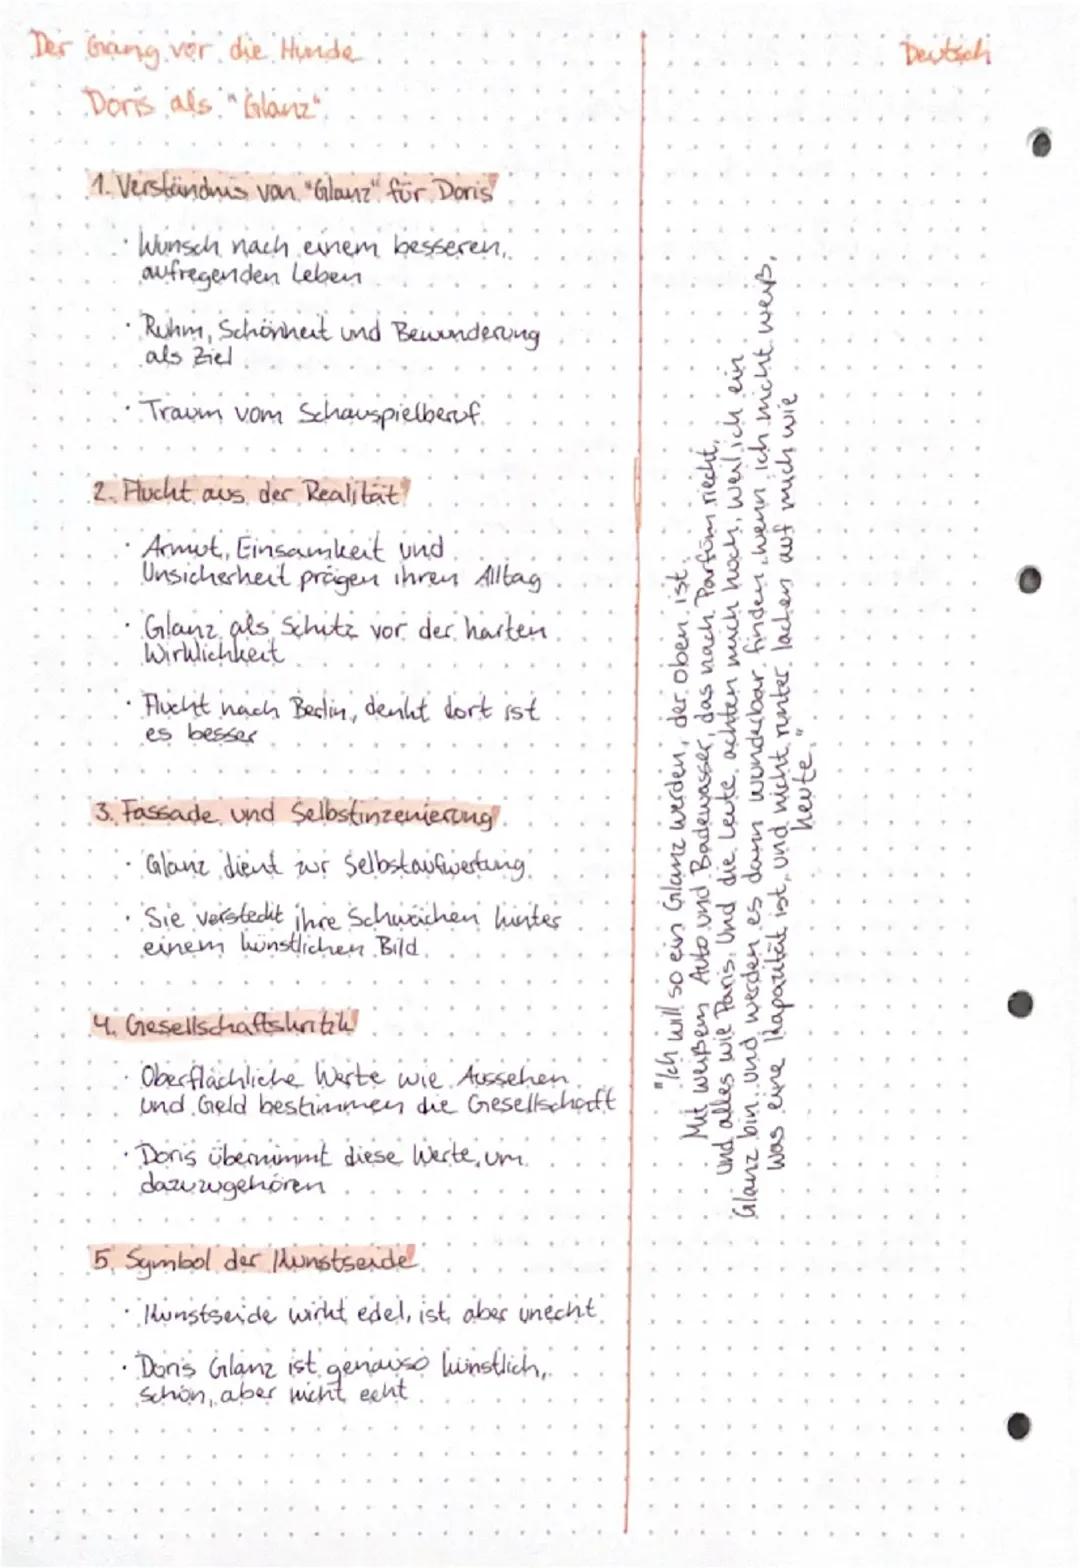 Der Gang vor die Hunde
Deutsch
Doris als "Glanz"
1. Verständnis von "Glanz" für Doris
· Wunsch nach einem besseren,
aufregenden Leben
· Ruhm, Schönheit und Bewunderung
als Ziel
· Traum vom Schauspielberuf
2. Flucht aus der Realität
· Armut, Einsamkeit und
Unsicherheit prägen ihren Alltag
· Glanz als Schutz vor der harten
Wirklichkeit
· Flucht nach Berlin, denkt dort ist
es besser
3. Fassade und Selbstinzenierung
· Glanz dient zur Selbstaufwertung
· Sie versteckt ihre Schwächen hinter
einem künstlichen Bild
4. Gesellschaftskritik
· Oberflächliche Werte wie Aussehen
und Geld bestimmen die Gesellschaft
· Doris übernimmt diese Werte, um
dazuzugehören
5. Symbol der Kunstseide
· Kunstseide wirkt edel, ist aber unecht
· Doris Glanz ist genauso künstlich,
schön, aber nicht echt
"Ich will so ein Glanz werden, der oben ist.
Mit weißem Auto und Badewasser, das nach Parfüm riecht,
und alles wie Paris. Und die Leute achten mich hoch, weil ich ein
Glanz bin und werden es dann wunderbar finden, wenn ich nicht weiß,
was eine Kapazität ist, und nicht runter lachen auf mich wie
heute."